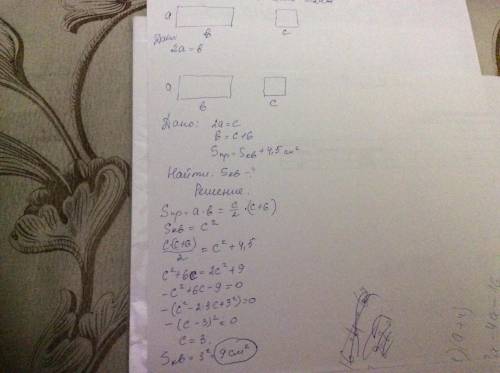 a
b c
Дано:
2a = b
a
b c
Дано: 2a = c
b = c+6
Sпр = Sкв + 4,5 см²
Найти: Sкв - ?
Решение.
Sпр = a · b = c/2 · (c+6)
Sкв = c²
c(c+6)/2 = c² + 4,5
c² + 6c = 2c² + 9
-c² + 6c - 9 = 0
-(c² - 2·3c + 3²) = 0
-(c - 3)² = 0
c = 3.
Sкв = 3² = 9 см²